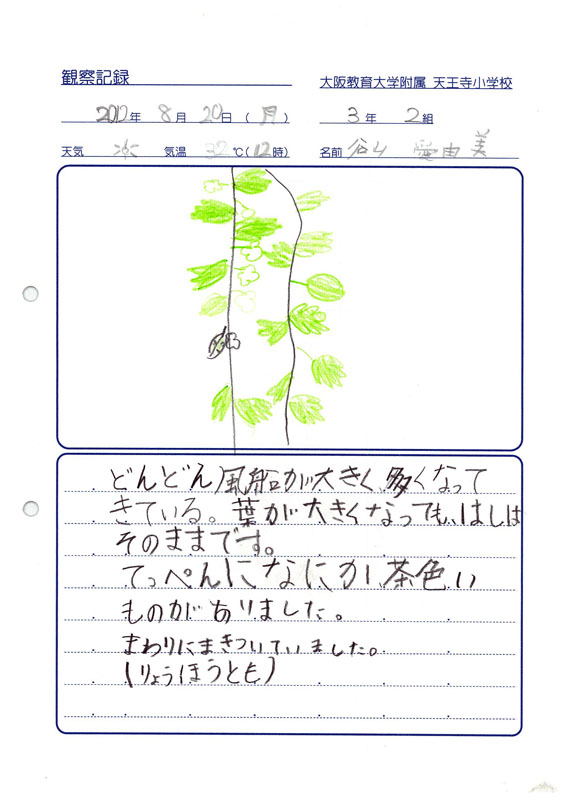 観察記録
大阪教育大学附属 天王寺小学校
2012年 8月 20日 (月)
3年 2組
天気 気温 32℃(12時)
名前 谷山 愛由美
どんどん風船が大きく多くなって
きている。葉が大きくなっても、はしは
そのままです。
てっぺんになにか、茶色い
ものがありました。
まわりにまきついていました。
(りょうほうとも)